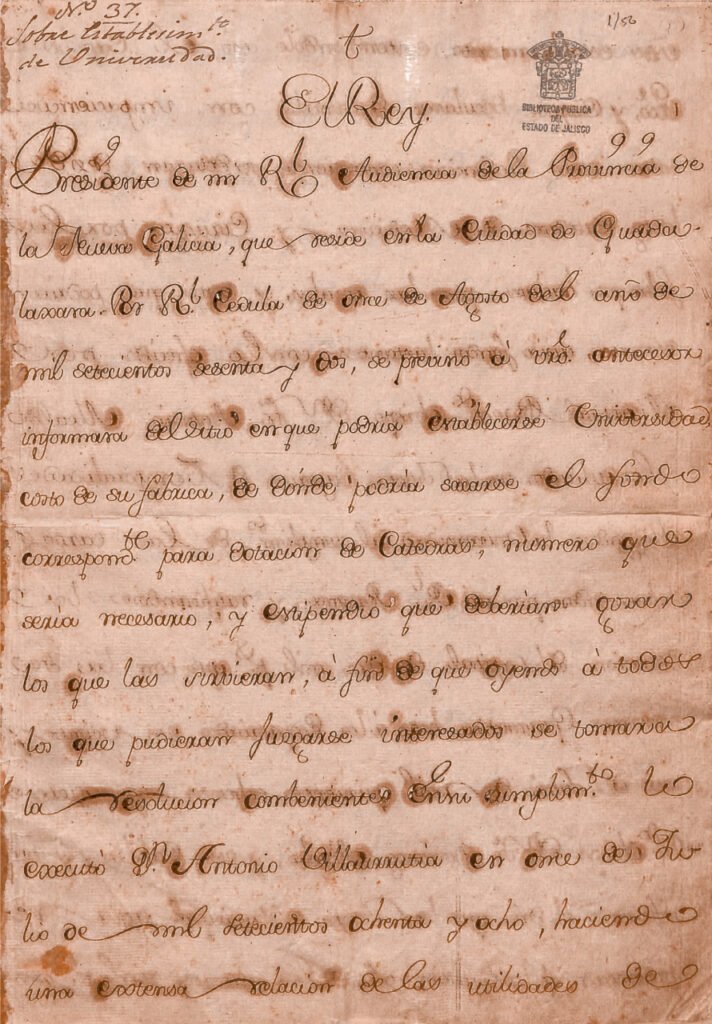 N.º 37.
Sobre Establesim.to
de Universidad.
1/50
†
El Rey.
BIBLIOTECA PUBLICA
DEL
ESTADO DE JALISCO
1
Presidente de mi R.l Audiencia de la Provincia de
la Nueva Galicia, que reside en la Ciudad de Guada-
laxara. Por R.l Cedula de once de Agosto del año de
mil setecientos sesenta y dos, se previno á vrõ. antecesor
informára del sitio en que podria establecerse Universidad,
costo de su fabrica, de dónde podria sacarse el fondo
correspond.te para dotacion de Catedras, numero que
seria necesario, y estipendio que deberian gozar
los que las sirbieran, á fin de que oyendo á todos
los que pudieran juzgarse interesados se tomara
la resolucion combeniente. En su cumplim.to lo
executó D.n Antonio Villaurrutia en once de Ju-
lio de mil setecientos ochenta y ocho, haciendo
una extensa relacion de las utilidades de